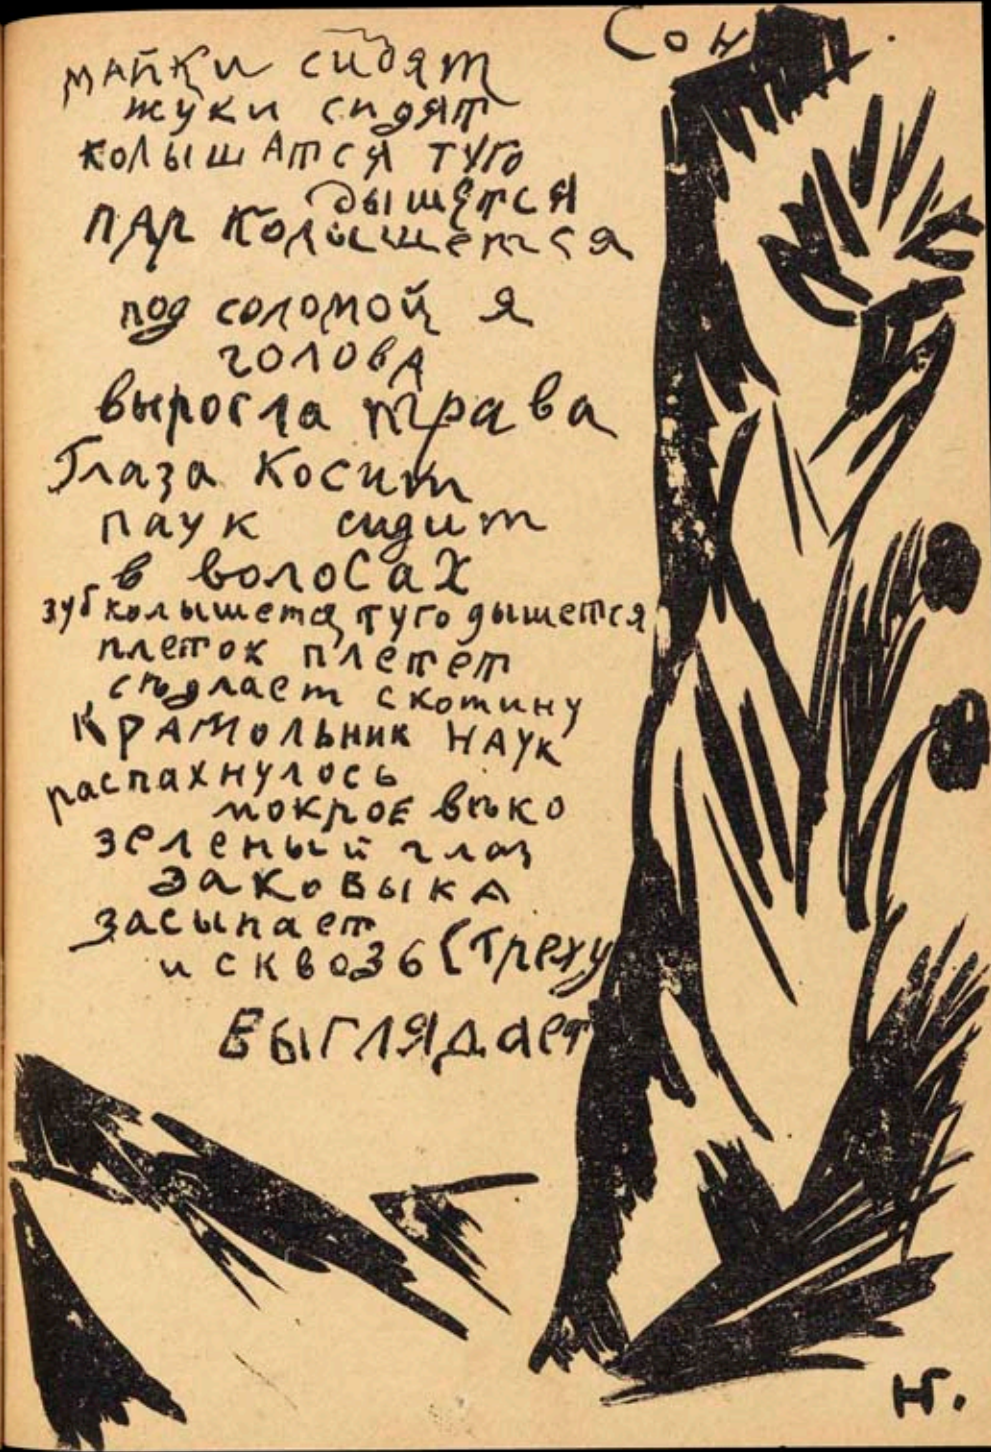 Сон
майки сидят
жуки сидят
колышатся туго
дышется
пар колышется
под соломой я
голова
выросла трава
Глаза косит
паук сидит
в волосах
зуб колышется туго дышется
плеток плетет
сѣдлает скотину
крамольник наук
распахнулось
мокрое вѣко
зеленый глаз
заковыка
засыпает
и сквозь (треху
выглядает
Н.